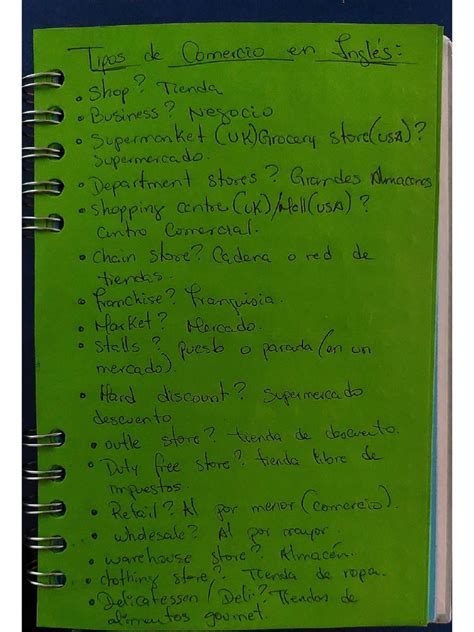 Tipos de Comercio en Inglés:
• Shop? Tienda
• Business? Negocio
• Supermarket (UK) Grocery store (USA)?
Supermercado.
• Department stores? Grandes Almacenes
• Shopping centre (UK)/Mall (USA)?
Centro Comercial.
• Chain store? Cadena o red de
tiendas.
• Franchise? Franquisia.
• Market? Mercado.
• Stalls? puesto o parada (en un
mercado).
• Hard discount? Supermercado
descuento
• outle store? tienda de descuento.
• Duty free store? tienda libre de
impuestos.
• Retail? Al por menor (comercio).
• wholesale? Al por mayor.
• warehouse store? Almacén.
• clothing store? Tienda de ropa.
• Delicatessen / Deli? Tiendas de
alimentos gourmet.